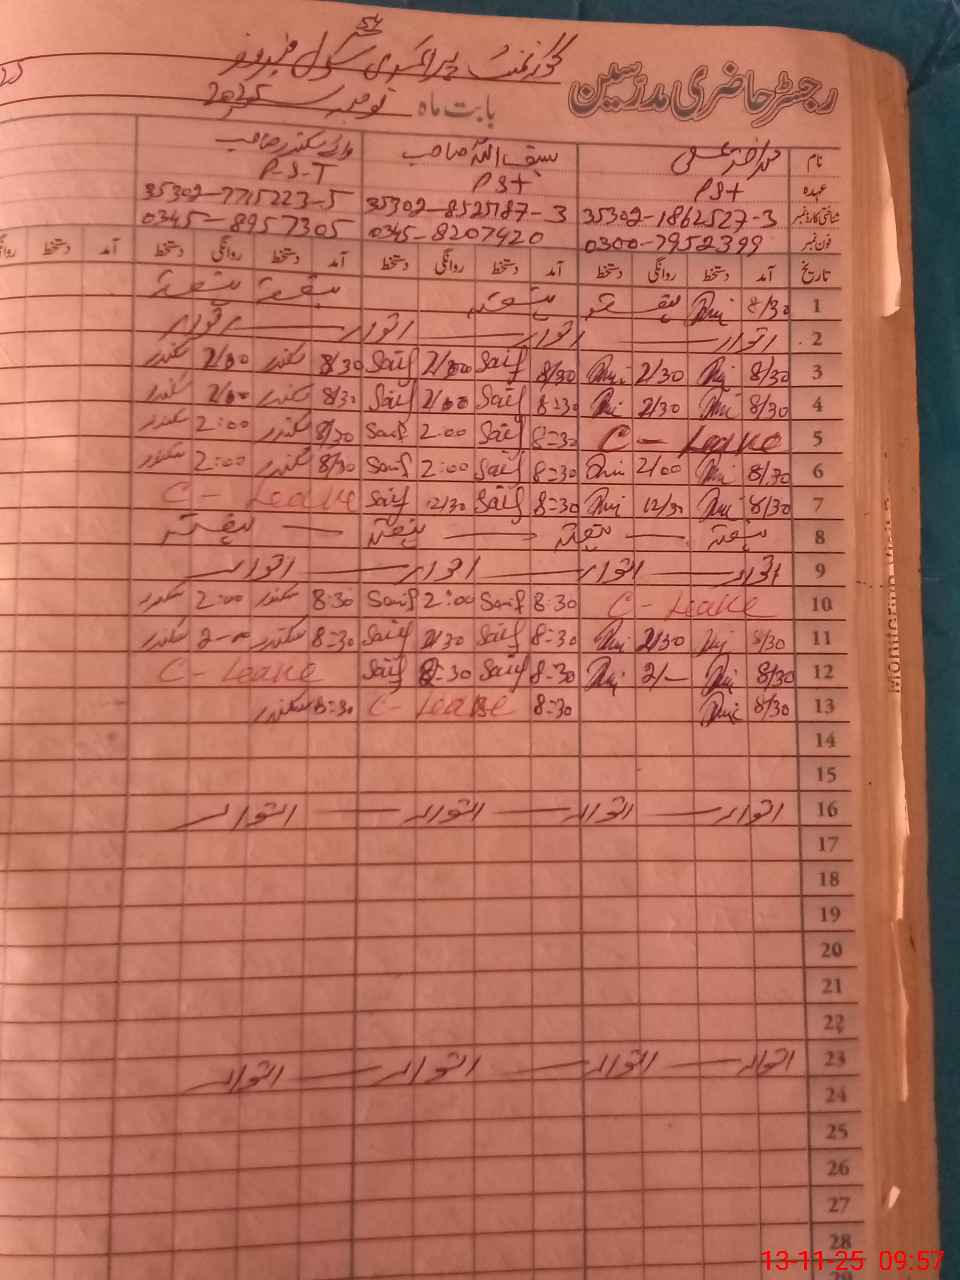 رجسٹر حاضری مدرسین گورنمنٹ پرائمری سکول
بابت ماہ نومبر 2025
نام سیف اللہ صاحب
عہدہ PST PST P-S-T
شناختی کارڈ نمبر 35302-1862527-3 35302-8525187-3 35302-7715223-5
فون نمبر 0300-7952399 0345-8207420 0345-8957305
تاریخ آمد دستخط روانگی دستخط آمد دستخط روانگی دستخط آمد دستخط روانگی دستخط آمد
1 8/30 ہفتہ ہفتہ ہفتہ ہفتہ
2 اتوار اتوار اتوار اتوار
3 8/30 2/30 8/30 Saif 2/00 Saif 8/30 سکندر 2/00 سکندر
4 8/30 2/30 8=30 Saif 2/00 Saif 8/30 سکندر 2/00 سکندر
5 C - Leave 8=30 Saif 2:00 Saif 8/30 سکندر 2:00 سکندر
6 8/30 2/00 8=30 Saif 2:00 Saif 8/30 سکندر 2:00 سکندر
7 8/30 12/30 8=30 Saif 12/30 Saif C - Leave
8 ہفتہ — ہفتہ — ہفتہ — ہفتہ
9 اتوار — اتوار — اتوار — اتوار
10 C - Leave 8:30 Saif 2:00 Saif 8:30 سکندر 2:00 سکندر
11 8/30 2/30 8=30 Saif 2/30 Saif 8=30 سکندر 2-00 سکندر
12 8/30 2/- 8=30 Saif 30 Saif C - Leave
13 8/30 8=30 C - Leave 8=30 سکندر
14
15
16 اتوار — اتوار — اتوار — اتوار
17
18
19
20
21
22
23 اتوار — اتوار — اتوار — اتوار
24
25
26
27
28
13-11-25 09:57